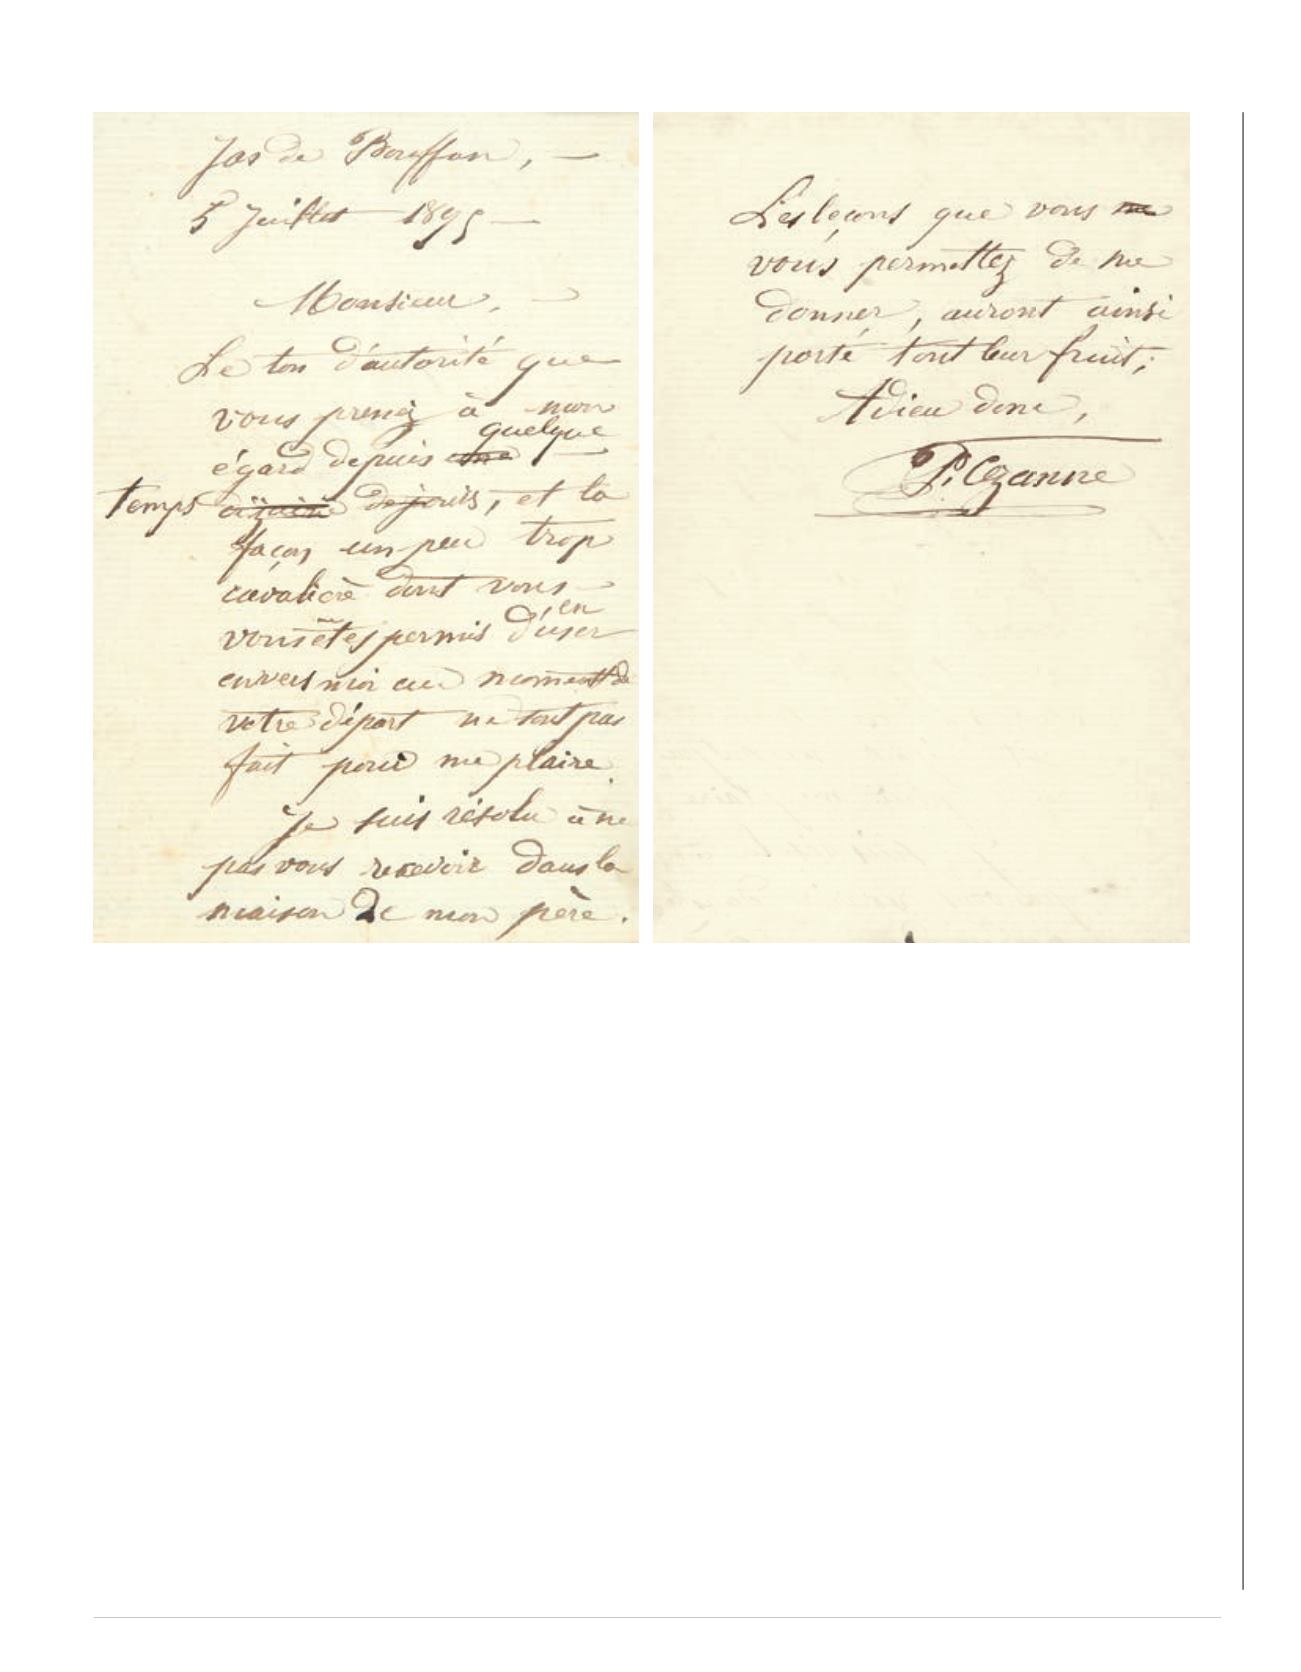 Jas de Bouffan, —
5 Juillet 1895 —
Monsieur, —
Le ton d'autorité que
vous prenez à mon
quelque
égard depuis une
temps de jours, et la
façon un peu trop
cavalière dont vous
en
vous êtes permis d'user
envers moi au moment de
votre départ ne sont pas
fait pour me plaire.
Je suis résolu à ne
pas vous recevoir dans la
maison de mon père.
Les leçons que vous me
vous permettez de me
donner, auront ainsi
porté tout leur fruit;
Adieu donc,
P. Cezanne